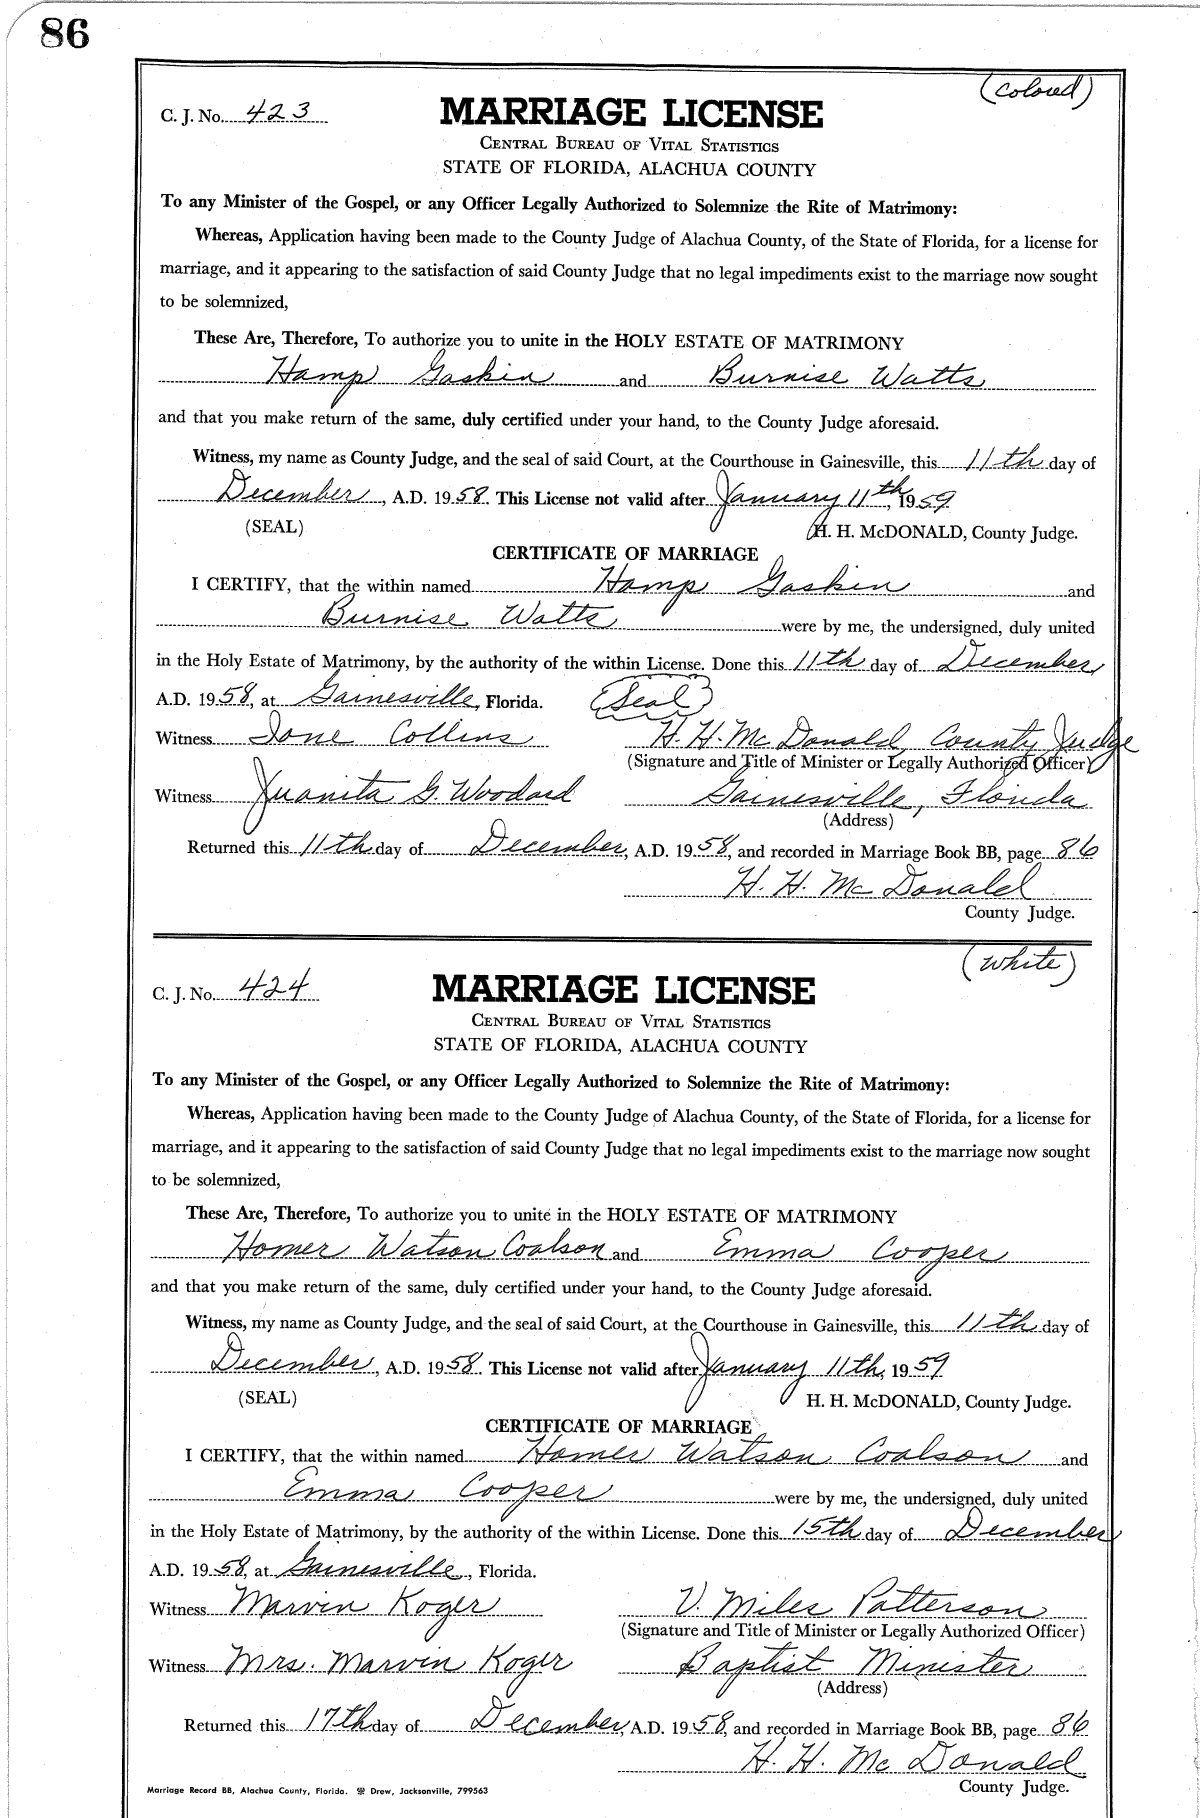 86
(Colored)
C. J. No. 423
MARRIAGE LICENSE
CENTRAL BUREAU OF VITAL STATISTICS
STATE OF FLORIDA, ALACHUA COUNTY
To any Minister of the Gospel, or any Officer Legally Authorized to Solemnize the Rite of Matrimony:
Whereas, Application having been made to the County Judge of Alachua County, of the State of Florida, for a license for
marriage, and it appearing to the satisfaction of said County Judge that no legal impediments exist to the marriage now sought
to be solemnized,
These Are, Therefore, To authorize you to unite in the HOLY ESTATE OF MATRIMONY
Hamp Gaskin and Burnise Watts
and that you make return of the same, duly certified under your hand, to the County Judge aforesaid.
Witness, my name as County Judge, and the seal of said Court, at the Courthouse in Gainesville, this 11th day of
December, A.D. 1958. This License not valid after January 11th, 1959
(SEAL) H. H. McDONALD, County Judge.
CERTIFICATE OF MARRIAGE
I CERTIFY, that the within named Hamp Gaskin and
Burnise Watts were by me, the undersigned, duly united
in the Holy Estate of Matrimony, by the authority of the within License. Done this 11th day of December,
A.D. 1958, at Gainesville, Florida. (Seal)
Witness Ione Collins H. H. McDonald, County Judge
(Signature and Title of Minister or Legally Authorized Officer)
Witness Juanita G. Woodard Gainesville, Florida
(Address)
Returned this 11th day of December, A.D. 1958, and recorded in Marriage Book BB, page 86
H. H. McDonald
County Judge.
(White)
C. J. No. 424
MARRIAGE LICENSE
CENTRAL BUREAU OF VITAL STATISTICS
STATE OF FLORIDA, ALACHUA COUNTY
To any Minister of the Gospel, or any Officer Legally Authorized to Solemnize the Rite of Matrimony:
Whereas, Application having been made to the County Judge of Alachua County, of the State of Florida, for a license for
marriage, and it appearing to the satisfaction of said County Judge that no legal impediments exist to the marriage now sought
to be solemnized,
These Are, Therefore, To authorize you to unite in the HOLY ESTATE OF MATRIMONY
Homer Watson Coalson and Emma Cooper
and that you make return of the same, duly certified under your hand, to the County Judge aforesaid.
Witness, my name as County Judge, and the seal of said Court, at the Courthouse in Gainesville, this 11th day of
December, A.D. 1958. This License not valid after January 11th, 1959
(SEAL) H. H. McDONALD, County Judge.
CERTIFICATE OF MARRIAGE
I CERTIFY, that the within named Homer Watson Coalson and
Emma Cooper were by me, the undersigned, duly united
in the Holy Estate of Matrimony, by the authority of the within License. Done this 15th day of December
A.D. 1958, at Gainesville, Florida.
Witness Marvin Koger V. Miles Patterson
(Signature and Title of Minister or Legally Authorized Officer)
Witness Mrs. Marvin Koger Baptist Minister
(Address)
Returned this 17th day of December, A.D. 1958, and recorded in Marriage Book BB, page 86
H. H. McDonald
Marriage Record BB, Alachua County, Florida. Drew, Jacksonville, 799563 County Judge.